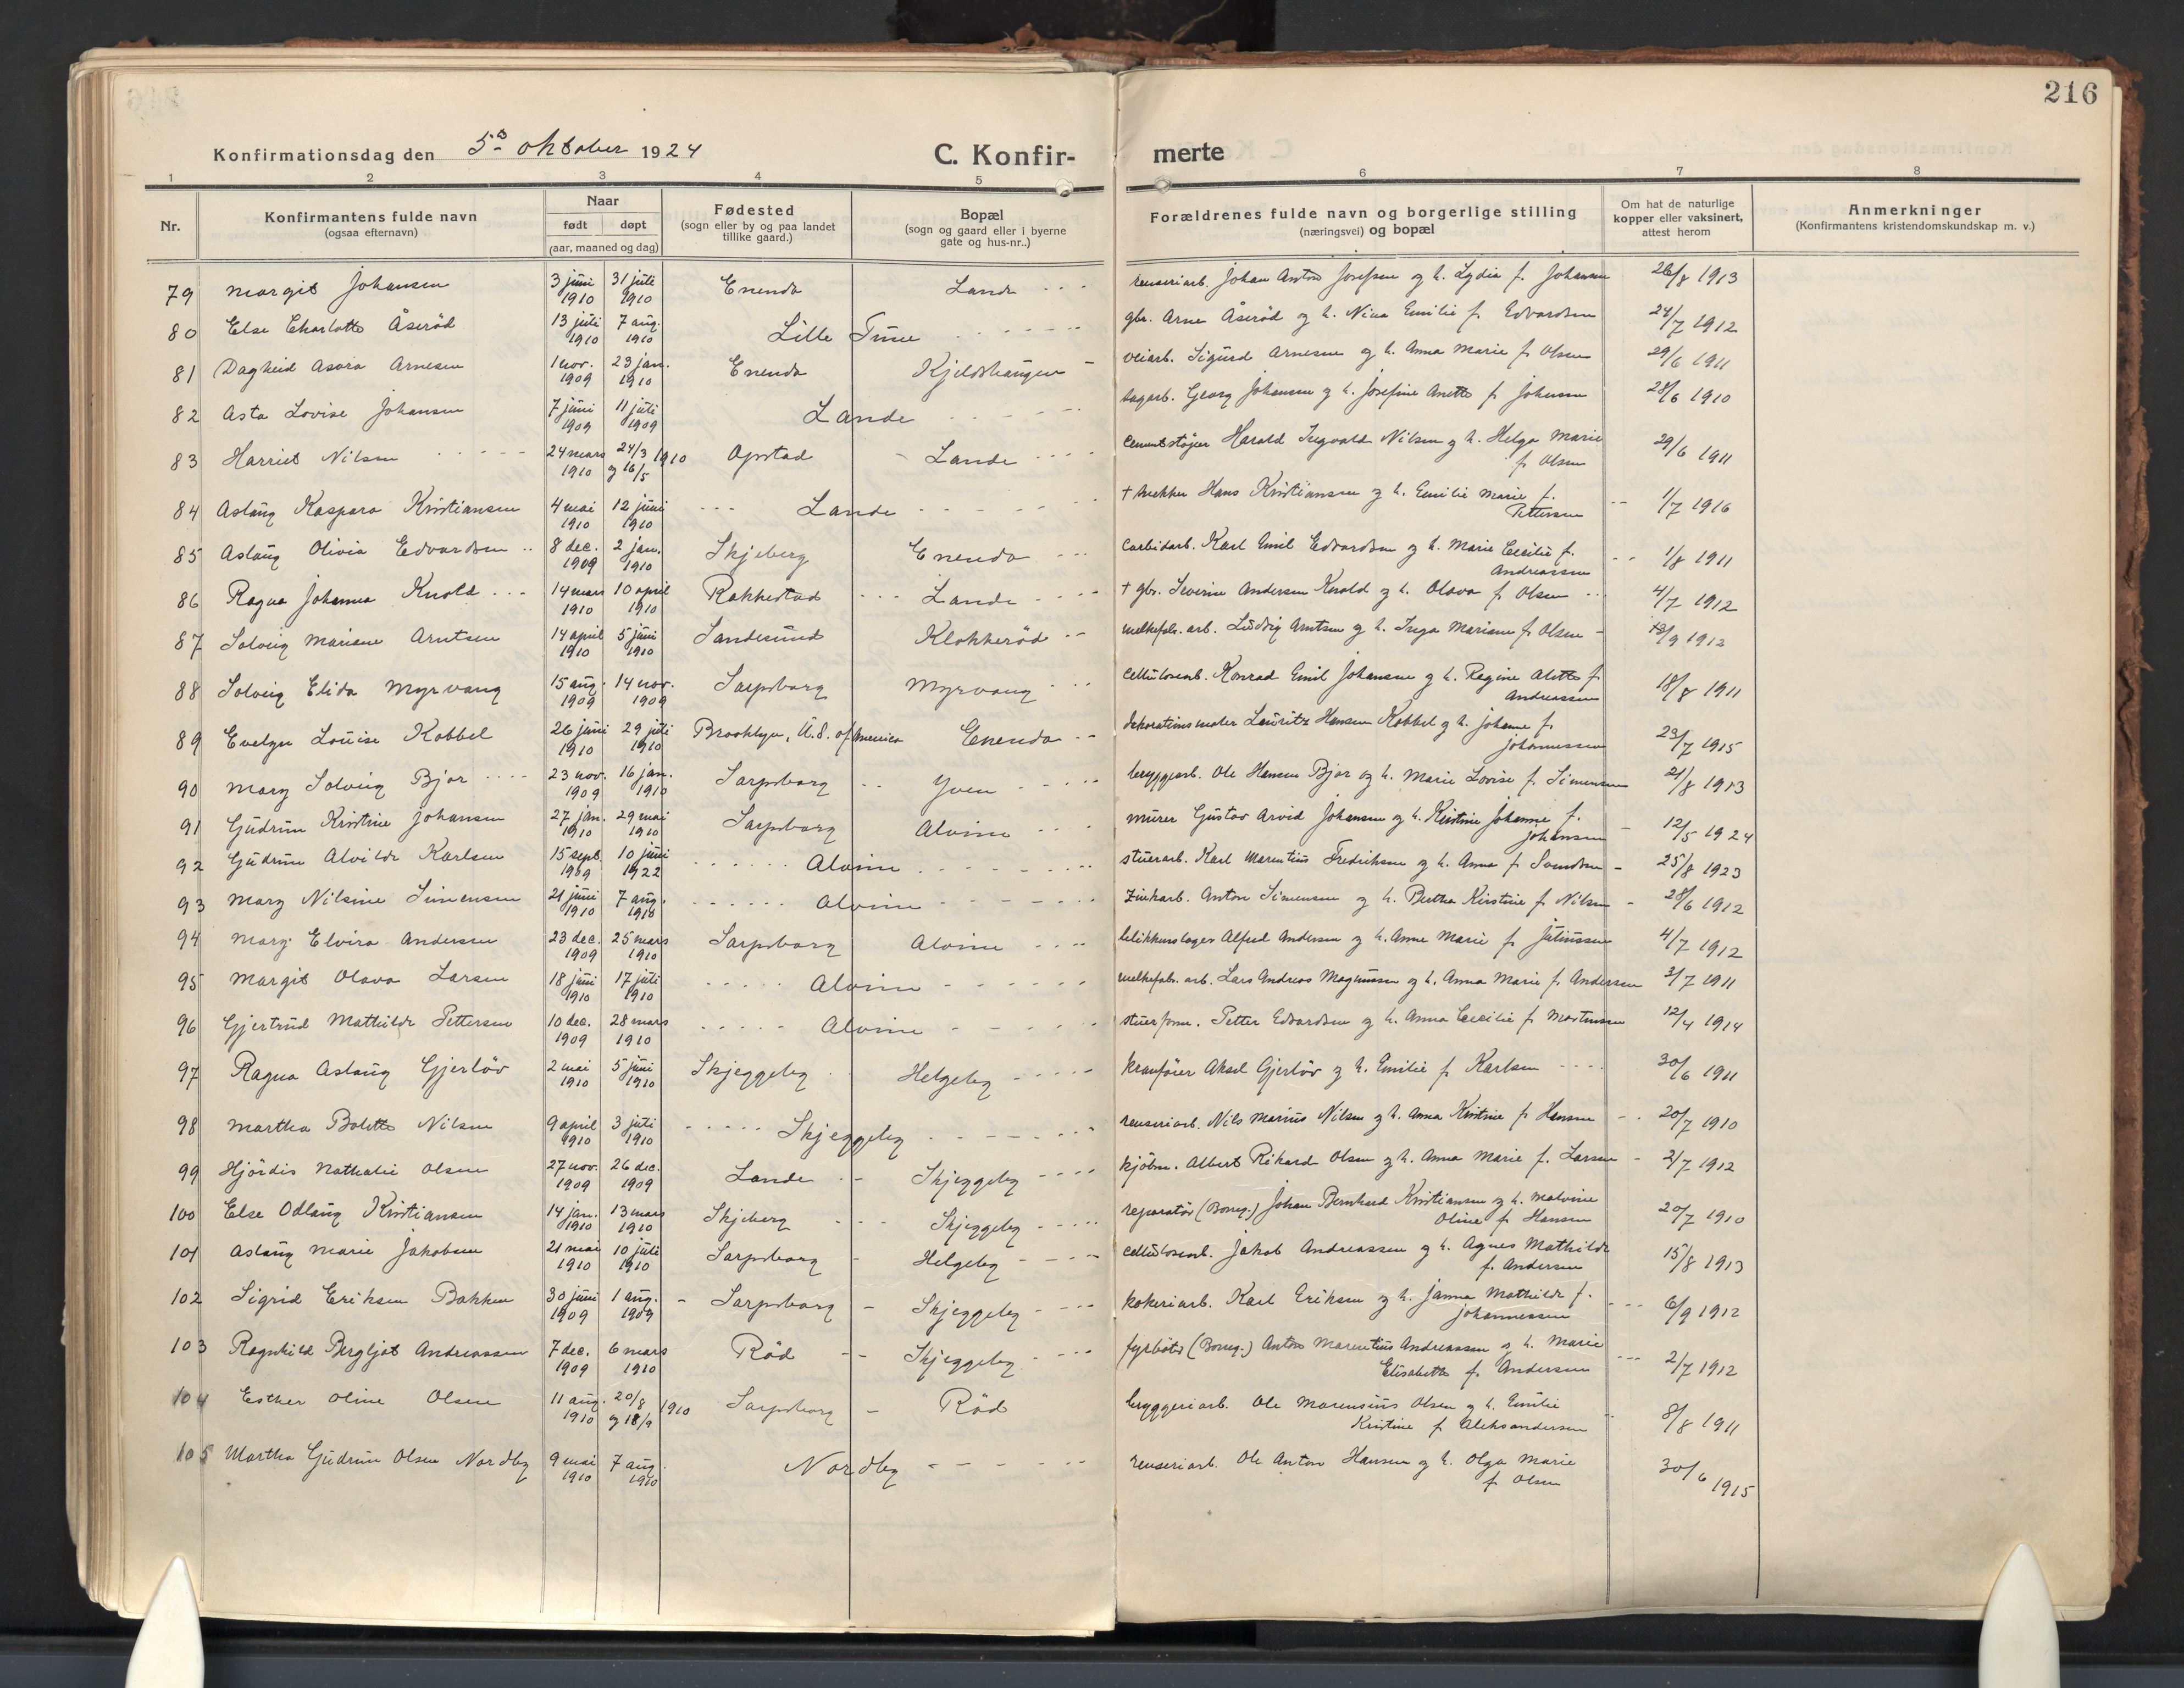 216
Konfirmationsdag den 5te oktober 1924
C. Konfir-
merte
1 2 3 4 5 6 7 8
Nr.
Konfirmantens fulde navn
(ogsaa efternavn)
Naar
født døpt
(aar, maaned og dag)
Fødested
(sogn eller by og paa landet
tillike gaard.)
Bopæl
(sogn og gaard eller i byerne
gate og hus-nr..)
Forældrenes fulde navn og borgerlige stilling
(næringsvei) og bopæl
Om hat de naturlige
kopper eller vaksinert,
attest herom
Anmerkninger
(Konfirmantens kristendomskundskap m. v.)
79 Margit Johansen 3 juni 1910 31 juli 1910 Enenda Lande renseriarb. Johan Anton Josefsen og h. Lydia f. Johansen 26/8 1913
80 Else Charlotte Åserød 13 juli 1910 7 aug. 1910 Lille Tune gbr. Arne Åserød og h. Nina Emilie f. Edvardsen 24/7 1912
81 Dagheid Asora Arnesen 1 nov. 1909 23 jan. 1910 Enenda Kjeldshaugen veiarb. Sigurd Arnesen og h. Anna Marie f. Olsen 29/6 1911
82 Asta Lovise Johansen 7 juni 1909 11 juli 1909 Lande sagarb. Georg Johansen og h. Josefine Anette f. Johansen 28/6 1910
83 Harriet Nilsen 24 mars 1910 24/3 og 16/5 1910 Opstad Lande cementstøper Harald Ingvald Nilsen og h. Helga Marie
f. Olsen 29/6 1911
84 Aslaug Kaspara Kristiansen 4 mai 1910 12 juni 1910 Lande † snekker Hans Kristiansen og h. Emilie Marie f.
Pettersen 1/7 1916
85 Aslaug Olivia Edvardsen 8 dec. 1909 2 jan. 1910 Skjeberg Enenda carbidarb. Karl Emil Edvardsen og h. Marie Cecilie f.
Andreassen 1/8 1911
86 Ragna Johanna Knold 14 mars 1910 10 april 1910 Rakkestad Lande † gbr. Severin Andersen Knold og h. Olava f. Olsen 4/7 1912
87 Solveig Mariane Arntsen 14 april 1910 5 juni 1910 Sandesund Klokkerød melkefab. arb. Ludvig Arntsen og h. Inga Mariane f. Olsen 13/9 1912
88 Solveig Elida Myrvang 15 aug. 1909 14 nov. 1909 Sarpsborg Myrvang cellulosearb. Konrad Emil Johansen og h. Regine Alette f.
Andreassen 18/8 1911
89 Evelyn Louise Kobbel 26 juni 1910 29 juli 1910 Brooklyn, U.S. of America Enenda dekorationsmaler Lauritz Hansen Kobbel og h. Johanne f.
Johannessen 23/7 1915
90 Mary Solveig Bjor 23 nov. 1909 16 jan. 1910 Sarpsborg Yven bryggearb. Ole Hansen Bjor og h. Marie Lovise f. Simensen 21/8 1913
91 Gudrun Kristine Johansen 27 jan. 1910 29 mai 1910 Sarpsborg Alvim murer Gustav Arvid Johansen og h. Kristine Johanne f.
Johansen 12/5 1924
92 Gudrun Alvilde Karlsen 15 sept. 1909 10 juni 1922 Alvim stuerarb. Karl Marentius Fredriksen og h. Anna f. Svendsen 25/8 1923
93 Mary Nilsine Simensen 21 juni 1910 7 aug. 1910 Alvim zinkarb. Anton Simensen og h. Berthe Kirstine f. Nilsen 28/6 1912
94 Mary Elvira Andersen 23 dec. 1909 25 mars 1910 Sarpsborg Alvim blikkenslager Alfred Andersen og h. Anne Marie f. Juliussen 4/7 1912
95 Margit Olava Larsen 18 juni 1910 17 juli 1910 Alvim melkefab. arb. Lars Andreas Magnussen og h. Anna Marie f. Andersen 3/7 1911
96 Gjertrud Mathilde Pettersen 10 dec. 1909 28 mars 1910 Alvim stuerform. Petter Edvardsen og h. Anna Cecilie f. Martinsen 12/4 1914
97 Ragna Aslaug Gjerløv 2 mai 1910 5 juni 1910 Skjeggeby Helgeby kranfører Aksel Gjerløv og h. Emilie f. Karlsen 30/6 1911
98 Martha Bolette Nilsen 9 april 1910 3 juli 1910 Skjeggeby renseriarb. Nils Marius Nilsen og h. Anna Kristine f. Hansen 20/7 1910
99 Hjørdis Nathalie Olsen 27 nov. 1909 26 dec. 1909 Lande Skjeggeby kjøbm. Albert Rikard Olsen og h. Anna Marie f. Larsen 2/7 1912
100 Else Odlaug Kristiansen 14 jan. 1910 13 mars 1910 Skjeberg Skjeggeby reparatør (Borreg.) Johan Bernhard Kristiansen og h. Malvine
Oline f. Hansen 20/7 1910
101 Aslaug Marie Jakobsen 21 mai 1910 10 juli 1910 Sarpsborg Helgeby cellulosearb. Jakob Andreassen og h. Agnes Mathilde
f. Andersen 15/8 1913
102 Sigrid Eriksen Bakken 30 juni 1909 1 aug. 1909 Sarpsborg Skjeggeby kokeriarb. Karl Eriksen og h. Janna Mathilde f.
Johannessen 6/9 1912
103 Ragnhild Bergljot Andreassen 7 dec. 1909 6 mars 1910 Rød Skjeggeby fyrbøter (Borreg.) Anton Marentius Andreassen og h. Marie
Elisabeth f. Andersen 2/7 1912
104 Esther Oline Olsen 11 aug. 1910 20/8 og 18/9 1910 Sarpsborg Rød bryggeriarb. Ole Marensius Olsen og h. Emilie
Kristine f. Aleksandersen 8/8 1911
105 Martha Gudrun Olsen Nordby 9 mai 1910 7 aug. 1910 Nordby renseriarb. Ole Anton Hansen og h. Olga Marie
f. Olsen 30/6 1915